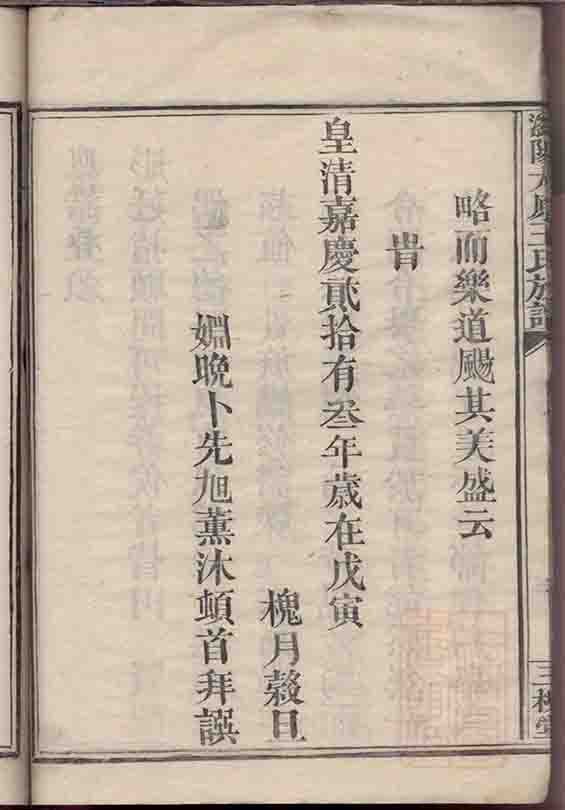 王氏族譜
三槐堂
略而樂道颺其美盛云
旹
皇清嘉慶貳拾有叁年歲在戊寅
槐月穀旦
姻晚卜先旭薰沐頓首拜譔